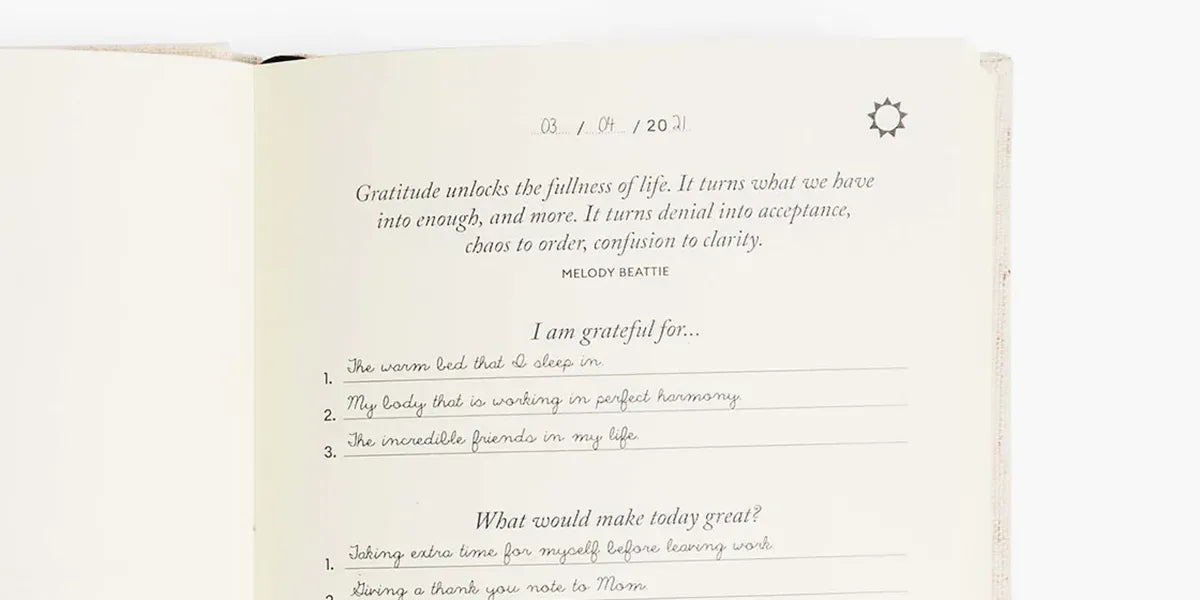 03 / 04 / 2021
Gratitude unlocks the fullness of life. It turns what we have
into enough, and more. It turns denial into acceptance,
chaos to order, confusion to clarity.
MELODY BEATTIE
I am grateful for...
1. The warm bed that I sleep in.
2. My body that is working in perfect harmony.
3. The incredible friends in my life.
What would make today great?
1. Taking extra time for myself before leaving work.
Giving a thank you note to Mom.